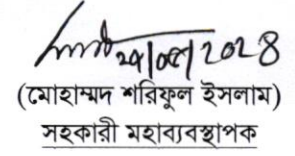 ২৫/০৫/২০২৪
(মোহাম্মদ শরিফুল ইসলাম)
সহকারী মহাব্যবস্থাপক